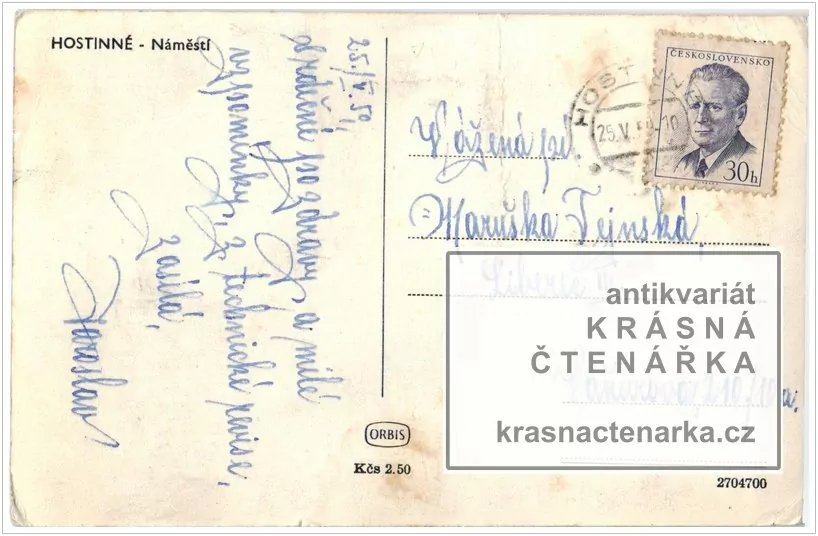 HOSTINNÉ - Náměstí
25./V. 59.
srdečné pozdravy a milé
vzpomínky z technické revise,
zasílá,
Jaroslav
Vážená pí.
Maruška Tejnská,
Liberec
ČESKOSLOVENSKO
30h
25.V.59.-10
antikvariát
KRÁSNÁ
ČTENÁŘKA
krasnactenarka.cz
ORBIS
Kčs 2.50
2704700